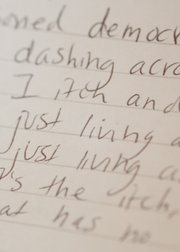 oned democr
dashing acro
I itch and
just living a
just living a
's the itch,
at has no